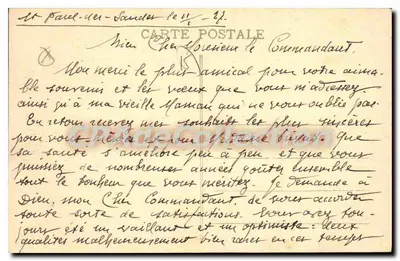 St Paul-des-Landes le 11 - 27.
CARTE POSTALE
Mien Cher Monsieur le Commandant.
Mon merci le plus amical pour votre aima-
ble souvenir et les voeux que vous m'adressez
ainsi qu'à ma vieille Maman qui ne vous oublie pas.
En retour recevez mes souhaits les plus sincères
pour vous- même pour Madame que
sa santé s'améliore peu à peu et que vous
puissiez de nombreuses années goûter ensemble
tout le bonheur que vous méritez. Je demande à
Dieu, mon Cher Commandant, de vous accorder
toute sorte de satisfactions. Vous avez tou-
jours été un vaillant et un optimiste: deux
qualités malheureusement bien rares en ces temps